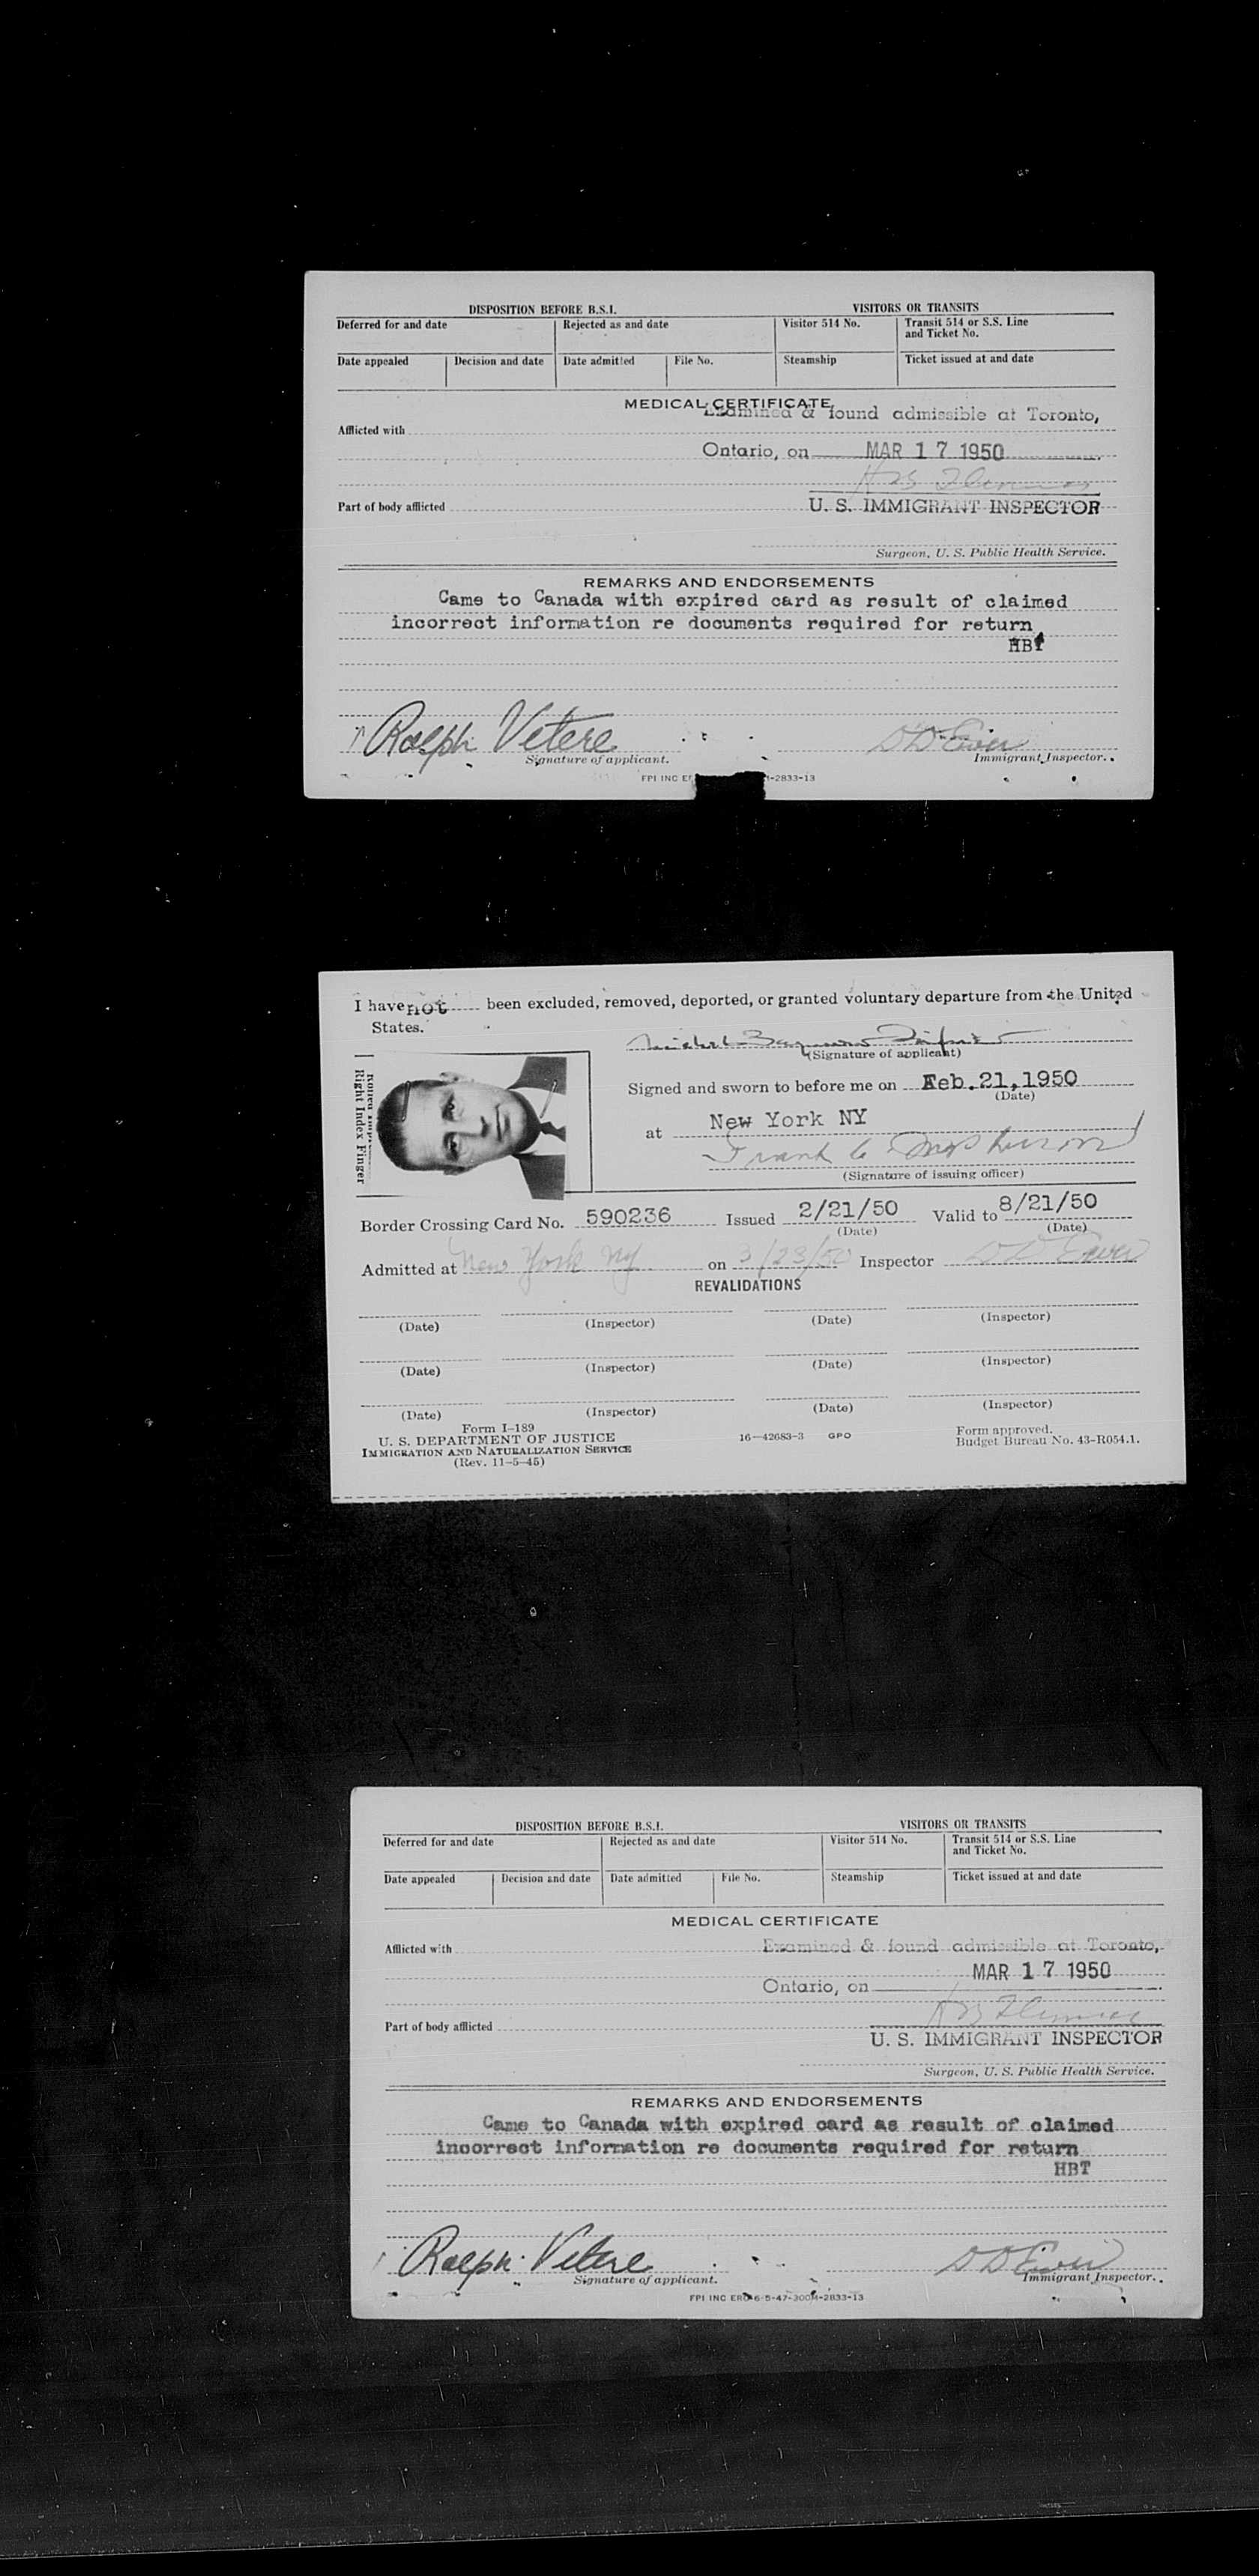 DISPOSITION BEFORE B.S.I. VISITORS OR TRANSITS
Deferred for and date Rejected as and date Visitor 514 No. Transit 514 or S.S. Line
and Ticket No.
Date appealed Decision and date Date admitted File No. Steamship Ticket issued at and date
MEDICAL CERTIFICATE
Examined & found admissible at Toronto,
Afflicted with
Ontario, on MAR 17 1950
Part of body afflicted U. S. IMMIGRANT INSPECTOR
Surgeon, U. S. Public Health Service.
REMARKS AND ENDORSEMENTS
Came to Canada with expired card as result of claimed
incorrect information re documents required for return
HBT
Ralph Vetere
Signature of applicant. Immigrant Inspector.
FPI INC -2833-13
I have not been excluded, removed, deported, or granted voluntary departure from the United
States.
(Signature of applicant)
Right Index Finger
Signed and sworn to before me on Feb. 21, 1950
(Date)
at New York NY
Frank
(Signature of issuing officer)
Border Crossing Card No. 590236 Issued 2/21/50 Valid to 8/21/50
(Date) (Date)
Admitted at New York NY on 3/23/50 Inspector
REVALIDATIONS
(Date) (Inspector) (Date) (Inspector)
(Date) (Inspector) (Date) (Inspector)
(Date) (Inspector) (Date) (Inspector)
Form I-189
U. S. DEPARTMENT OF JUSTICE
IMMIGRATION AND NATURALIZATION SERVICE
(Rev. 11-5-45)
16-42683-3 GPO
Form approved.
Budget Bureau No. 43-R054.1.
DISPOSITION BEFORE B.S.I. VISITORS OR TRANSITS
Deferred for and date Rejected as and date Visitor 514 No. Transit 514 or S.S. Line
and Ticket No.
Date appealed Decision and date Date admitted File No. Steamship Ticket issued at and date
MEDICAL CERTIFICATE
Afflicted with Examined & found admissible at Toronto,
Ontario, on MAR 17 1950
Part of body afflicted
U. S. IMMIGRANT INSPECTOR
Surgeon, U. S. Public Health Service.
REMARKS AND ENDORSEMENTS
Came to Canada with expired card as result of claimed
incorrect information re documents required for return
HBT
Ralph Vetere
Signature of applicant. Immigrant Inspector.
FPI INC 6-5-47-300M-2833-13